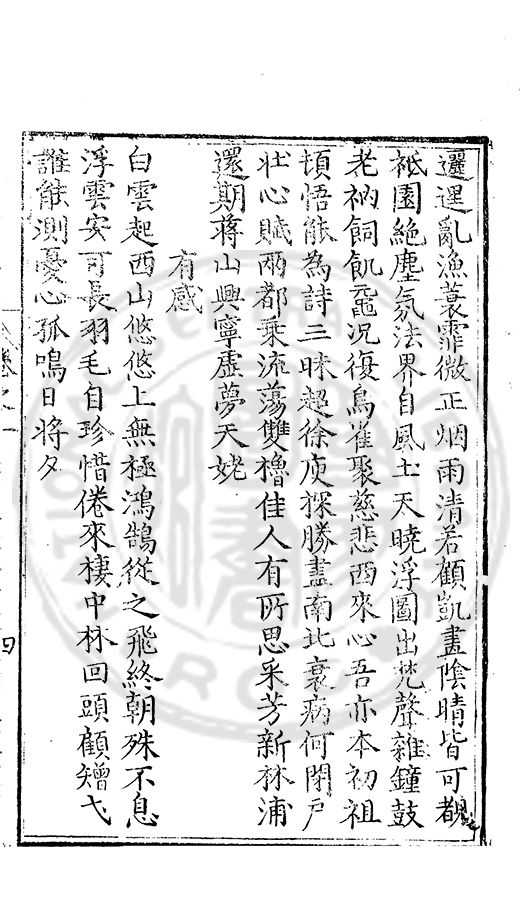 邐迡亂漁蓑霏微正烟雨清若顧凱畫陰晴皆可覩
祇園絶塵氛法界自風土天曉浮圖出梵聲雜鐘鼓
老衲飼飢鼯况復鳥雀聚慈悲西來心吾亦本初祖
頓悟能為詩三昧超徐庾探勝盡南北衰病何閉户
壮心賦兩都乗流蕩雙櫓佳人有所思采芳新林浦
還期蔣山興寧虚夢天姥
有感
白雲起西山悠悠上無極鴻鵠縱之飛終朝殊不息
浮雲安可長羽毛自珍惜倦來棲中林回頭顧矰弋
誰能測憂心孤鳴日将夕
卷之一
四